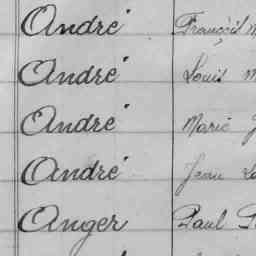 André François
André Louis
André Marie
André Jean
Anger Paul